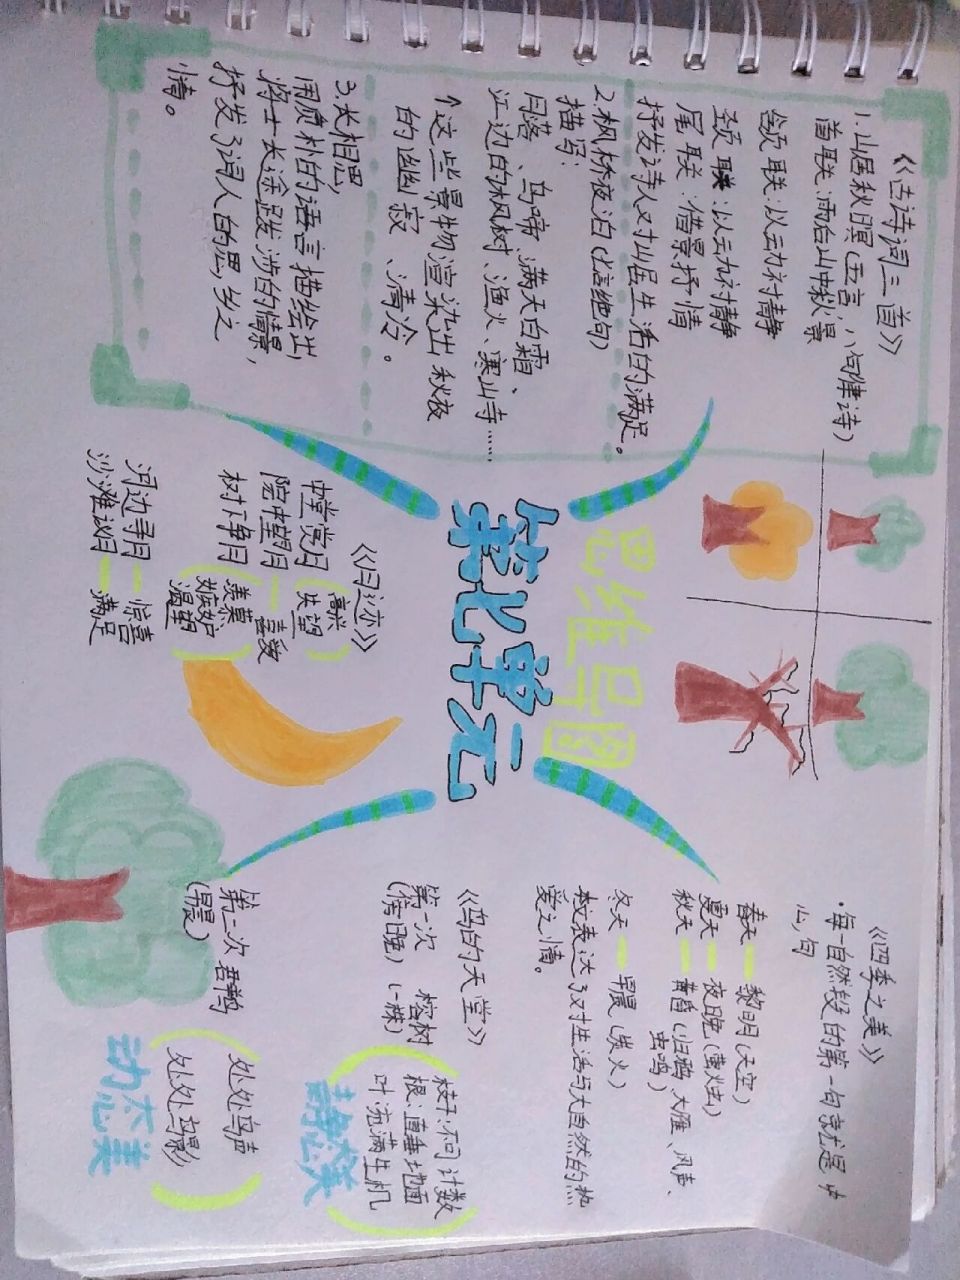 《古诗词三首》
1.山居秋暝(五言,八句律诗)
首联:雨后山中秋景
颔联:以动衬静
颈联:以动衬静
尾联:借景抒情
抒发诗人对山居生活的满足。
2.枫桥夜泊(七言绝句)
描写:
月落、乌啼、满天白霜、
江边的枫树、渔火、寒山寺……
↑这些景物渲染出秋夜
的幽寂、清冷。
3.长相思,
用质朴的语言描绘出,
将士长途跋涉的情景,
抒发了词人的思乡之
情。
思维导图
第七单元
《四季之美》
·每一自然段的第一句就是中
心句
春天 黎明(天空)
夏天 夜晚(萤火虫)
秋天 黄昏(归鸦、大雁、风声、
虫鸣)
冬天 早晨(炭火)
本文表达了对生活与大自然的热
爱之情。
《月迹》
中堂赏月 (高兴 失望)
院中望月 喜数
树下争月 (羡慕 嫉妒 渴望)
河边寻月 惊喜
沙滩议月 满足
《鸟的天堂》
第一次 榕树
(傍晚) (一株)
枝干:不可计数
根:直垂地面
叶:充满生机
静态美
第二次 群鸟
(早晨)
处处鸟声
处处鸟影
动态美